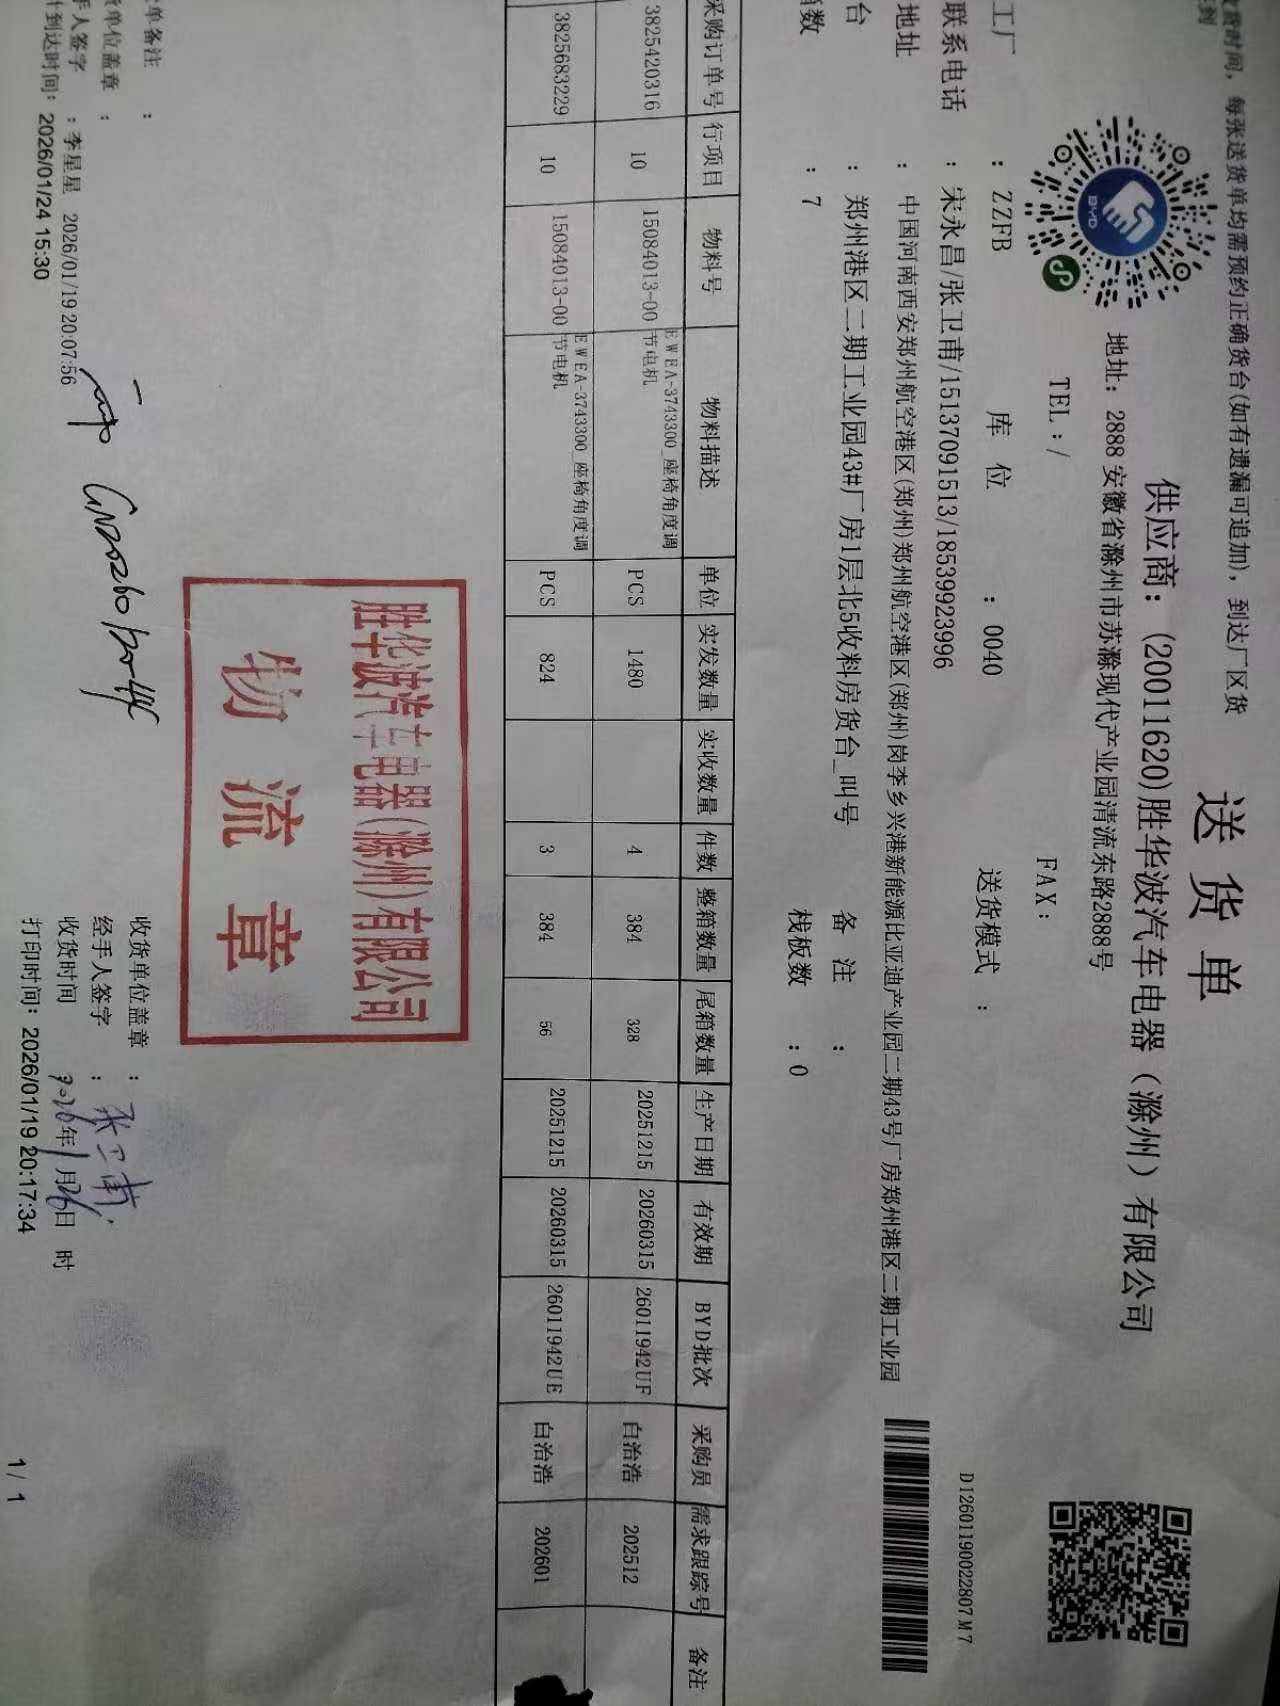 送 货 单
收货时间，每张送货单均需预约正确货台(如有遗漏可追加)，到达厂区货
BYD
供应商：(20011620)胜华波汽车电器（滁州）有限公司
地址：2888 安徽省滁州市苏滁现代产业园清流东路2888号
TEL：/ FAX：
D12601190022807M7
工厂 ：ZZFB 库 位 ：0040 送货模式 ：
联系电话 ：宋永昌/张卫甫/15137091513/18539923996
地址 ：中国河南西安郑州航空港区(郑州)郑州航空港区(郑州)岗李乡兴港新能源比亚迪产业园二期43号厂房郑州港区二期工业园
台 ：郑州港区二期工业园43#厂房1层北5收料房货台_叫号 备 注 ：
箱数 ：7 栈板数 ：0
采购订单号 行项目 物料号 物料描述 单位 实发数量 实收数量 件数 整箱数量 尾箱数量 生产日期 有效期 BYD批次 采购员 需求跟踪号 备注
3825420316 10 15084013-00 EWEA-3743300_座椅角度调节电机 PCS 1480 4 384 328 20251215 20260315 26011942UF 白治浩 202512
3825683229 10 15084013-00 EWEA-3743300_座椅角度调节电机 PCS 824 3 384 56 20251215 20260315 26011942UE 白治浩 202601
胜华波汽车电器(滁州)有限公司
物 流 章
单备注 ：
货单位盖章 ： 收货单位盖章 ：
手人签字 ：李星星 2026/01/19 20:07:56 经手人签字 ：张卫甫
收货时间 2026年1月26日 时
计到达时间：2026/01/24 15:30 打印时间：2026/01/19 20:17:34
1 / 1